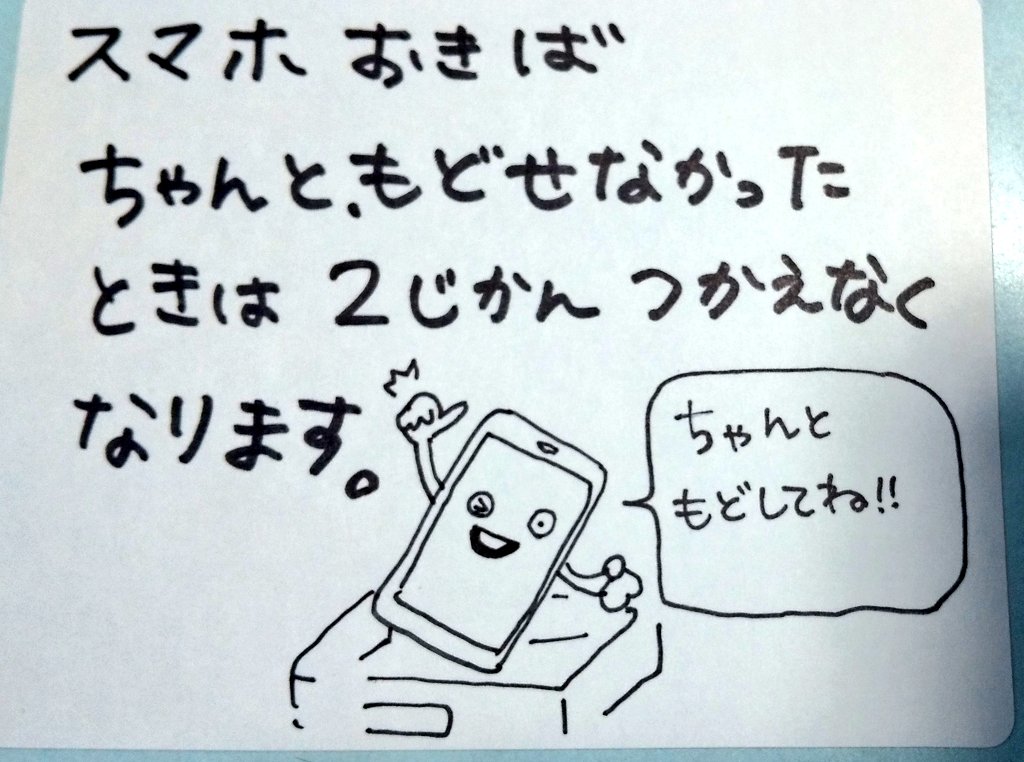 スマホ おきば
ちゃんと、もどせなかった
ときは 2じかん つかえなく
なります。
ちゃんと
もどしてね!!